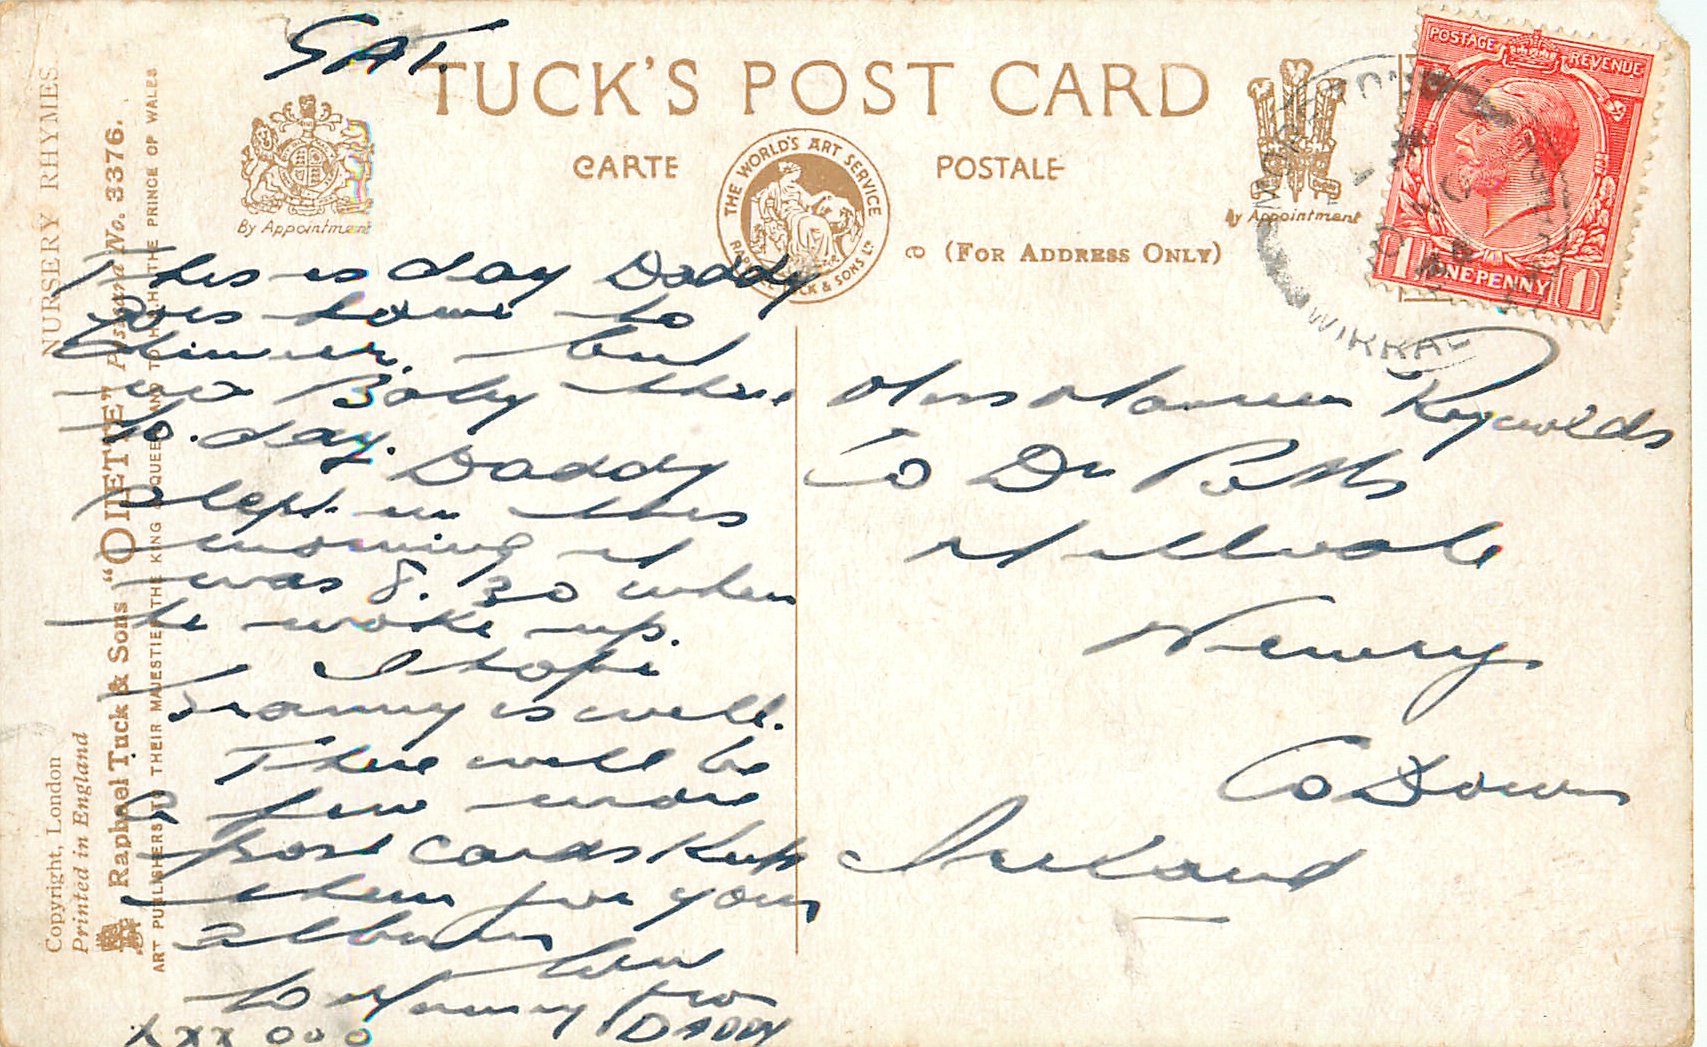 SAT.
TUCK'S POST CARD
CARTE POSTALE
By Appointment
THE WORLD'S ART SERVICE
RAPHAEL TUCK & SONS LTD
By Appointment
(FOR ADDRESS ONLY)
POSTAGE REVENUE
1 ONE PENNY 1
WIRRAL
NURSERY RHYMES.
Raphael Tuck & Sons "OILETTE" Postcard No. 3376.
ART PUBLISHERS TO THEIR MAJESTIES THE KING & QUEEN AND TO H.R.H. THE PRINCE OF WALES
Copyright, London
Printed in England
This is day Daddy
goes home to
dinner, but
no Baby there
to.day.
Daddy
slept in this
morning it
was 8.30 when
he woke up.
I hope
Granny is well.
There will be
a few more
post cards keep
them for your
album
love
to Mummy from
DADDY
xxx ooo
Miss Maureen Reynolds
Co Dr Potts
Hillvale
Newry
Co Down
Ireland